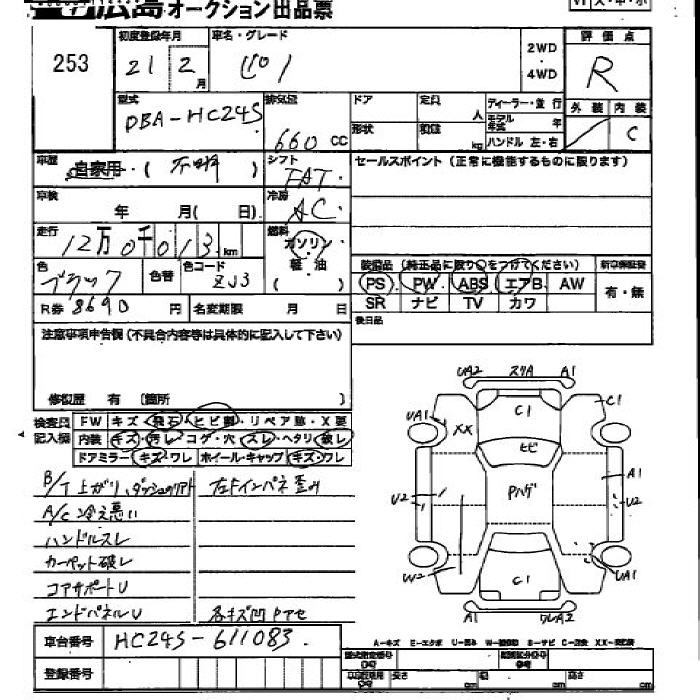 広島 オークション出品票
253
初度登録年月
21 2月
車名・グレード
ピノ
2WD
・
4WD
評価点
R
外装 内装
C
型式
DBA-HC24S
排気量
660 CC
ドア
定員
人
形状
積載
kg
ディーラー・並行
モデル年式 年
ハンドル 左・右
車歴
自家用・( 不明 )
シフト
FAT
セールスポイント (正常に機能するものに限ります)
車検
年 月( 日)
冷房
AC
走行
12万0千013km
燃料
ガソリン
軽油
( )
色
ブラック
色替
色コード
ZJ3
装備品 (純正品に限り○をつけてください)
PS PW ABS エアB AW
SR ナビ TV カワ
有・無
R券 8690 円
名変期限 月 日
後日品
注意事項申告欄 (不具合内容等は具体的に記入して下さい)
修復歴 有 (箇所 )
検査員記入欄
FW キズ・飛石・ヒビ割・リペア跡・X要
内装 キズ・汚レ・コゲ・穴・スレ・ヘタリ・破レ
ドアミラー キズ・ワレ ホイール・キャップ キズ・ワレ
B/T上がり、ダッシュクリアト
左Fインパネ歪み
A/C冷え悪い
ハンドルスレ
カーペット破レ
コアサポートU
エンドパネルU
各キズ凹Pアセ
車台番号 HC24S-611083
登録番号
UA2 スリA A1
UA1
XX
C1
C1
ヒビ
Pハゲ
A1
U2
U2
W2
C1
UA1
A1
ワレA2
A-キズ E-エクボ U-凹み W-補修跡 S-サビ C-腐食 XX-交換済
型式指定番号
類別区分番号
長さ cm 幅 cm 高さ cm